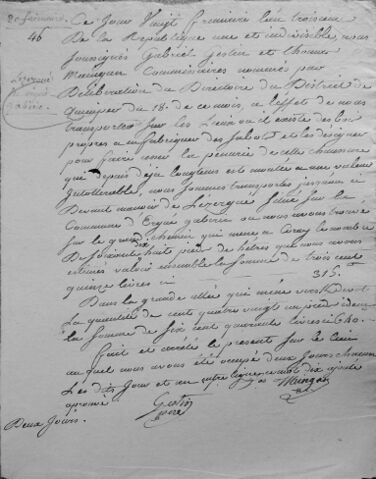 20 frimaire
46
Lezergué
en ergué
gabéric
Ce jour Vingt frimaire l'an troisieme
De la Republique une et indivisible nous
soussignés Gabriel Gestin et Thomas
Maingan Commissaires nommés par
Deliberation du Directoire du District de
Quimper du 18. de ce mois, a l'effet de nous
transporter sur les Lieux ou il existe des bois
propres a infabriquer des sabots et les designer
pour faire cesser la penurie de cette chaussure
qui depuis deja longtems est montée a une valeur
Intollerable, nous sommes transportés jusqu'au
Devant manoir de Lezergué situé sur la
Commune d'Ergué gaberic ou nous avons trouvé
sur le grand chemin qui mene a Coray le nombre
De soixante huit pieds de hetres que nous avons
estimés valoir ensemble la somme de trois cent
quinze livres ci 315.
Dans la grande allée qui mene vers
La quantité de cent quatre vingt un pied idem
la somme de six cent quarante livres ci 640.
fait et arreté le present sur les lieux
au quel nous avons été occupé deux jours chacun
Les dits Jour et an
aprouvé
Gestin
Maingan
Deux Jours.